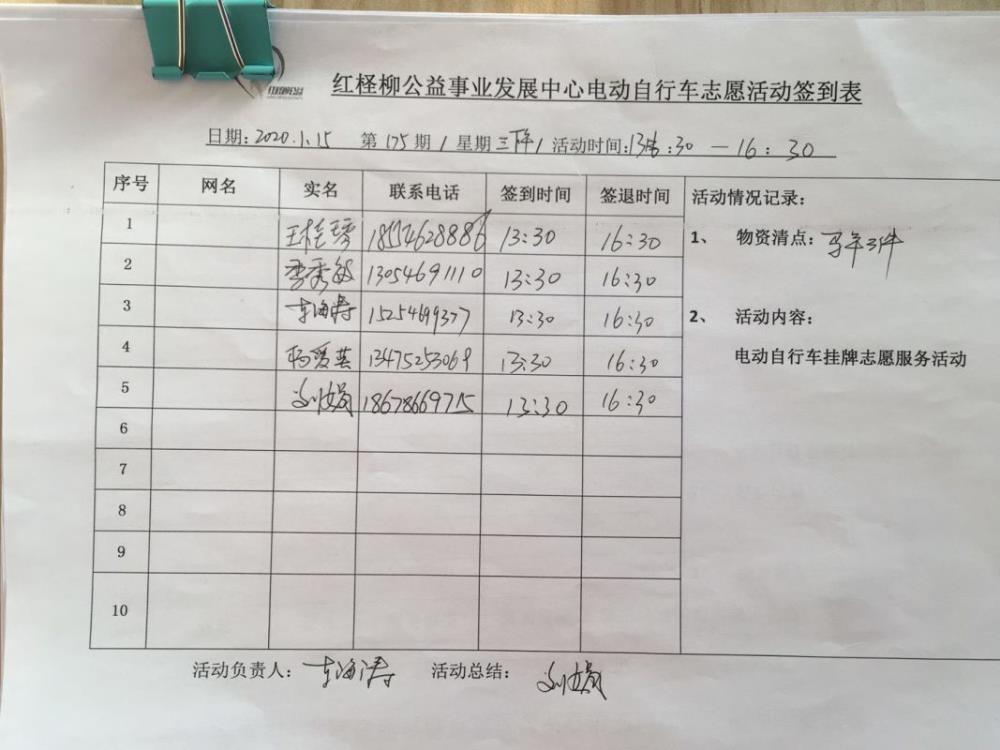 红柽柳公益事业发展中心电动自行车志愿活动签到表
日期:2020.1.15 第175期/星期三下午/活动时间:13:30-16:30
序号 网名 实名 联系电话 签到时间 签退时间 活动情况记录:
1 王桂琴 18554628886 13:30 16:30 1、 物资清点:马甲3件
2 李秀敏 13054691110 13:30 16:30
3 车海涛 15254699377 13:30 16:30 2、 活动内容:
4 杨爱英 13475253069 13:30 16:30 电动自行车挂牌志愿服务活动
5 刘娟 18678669715 13:30 16:30
6
7
8
9
10
活动负责人: 车海涛 活动总结: 刘娟